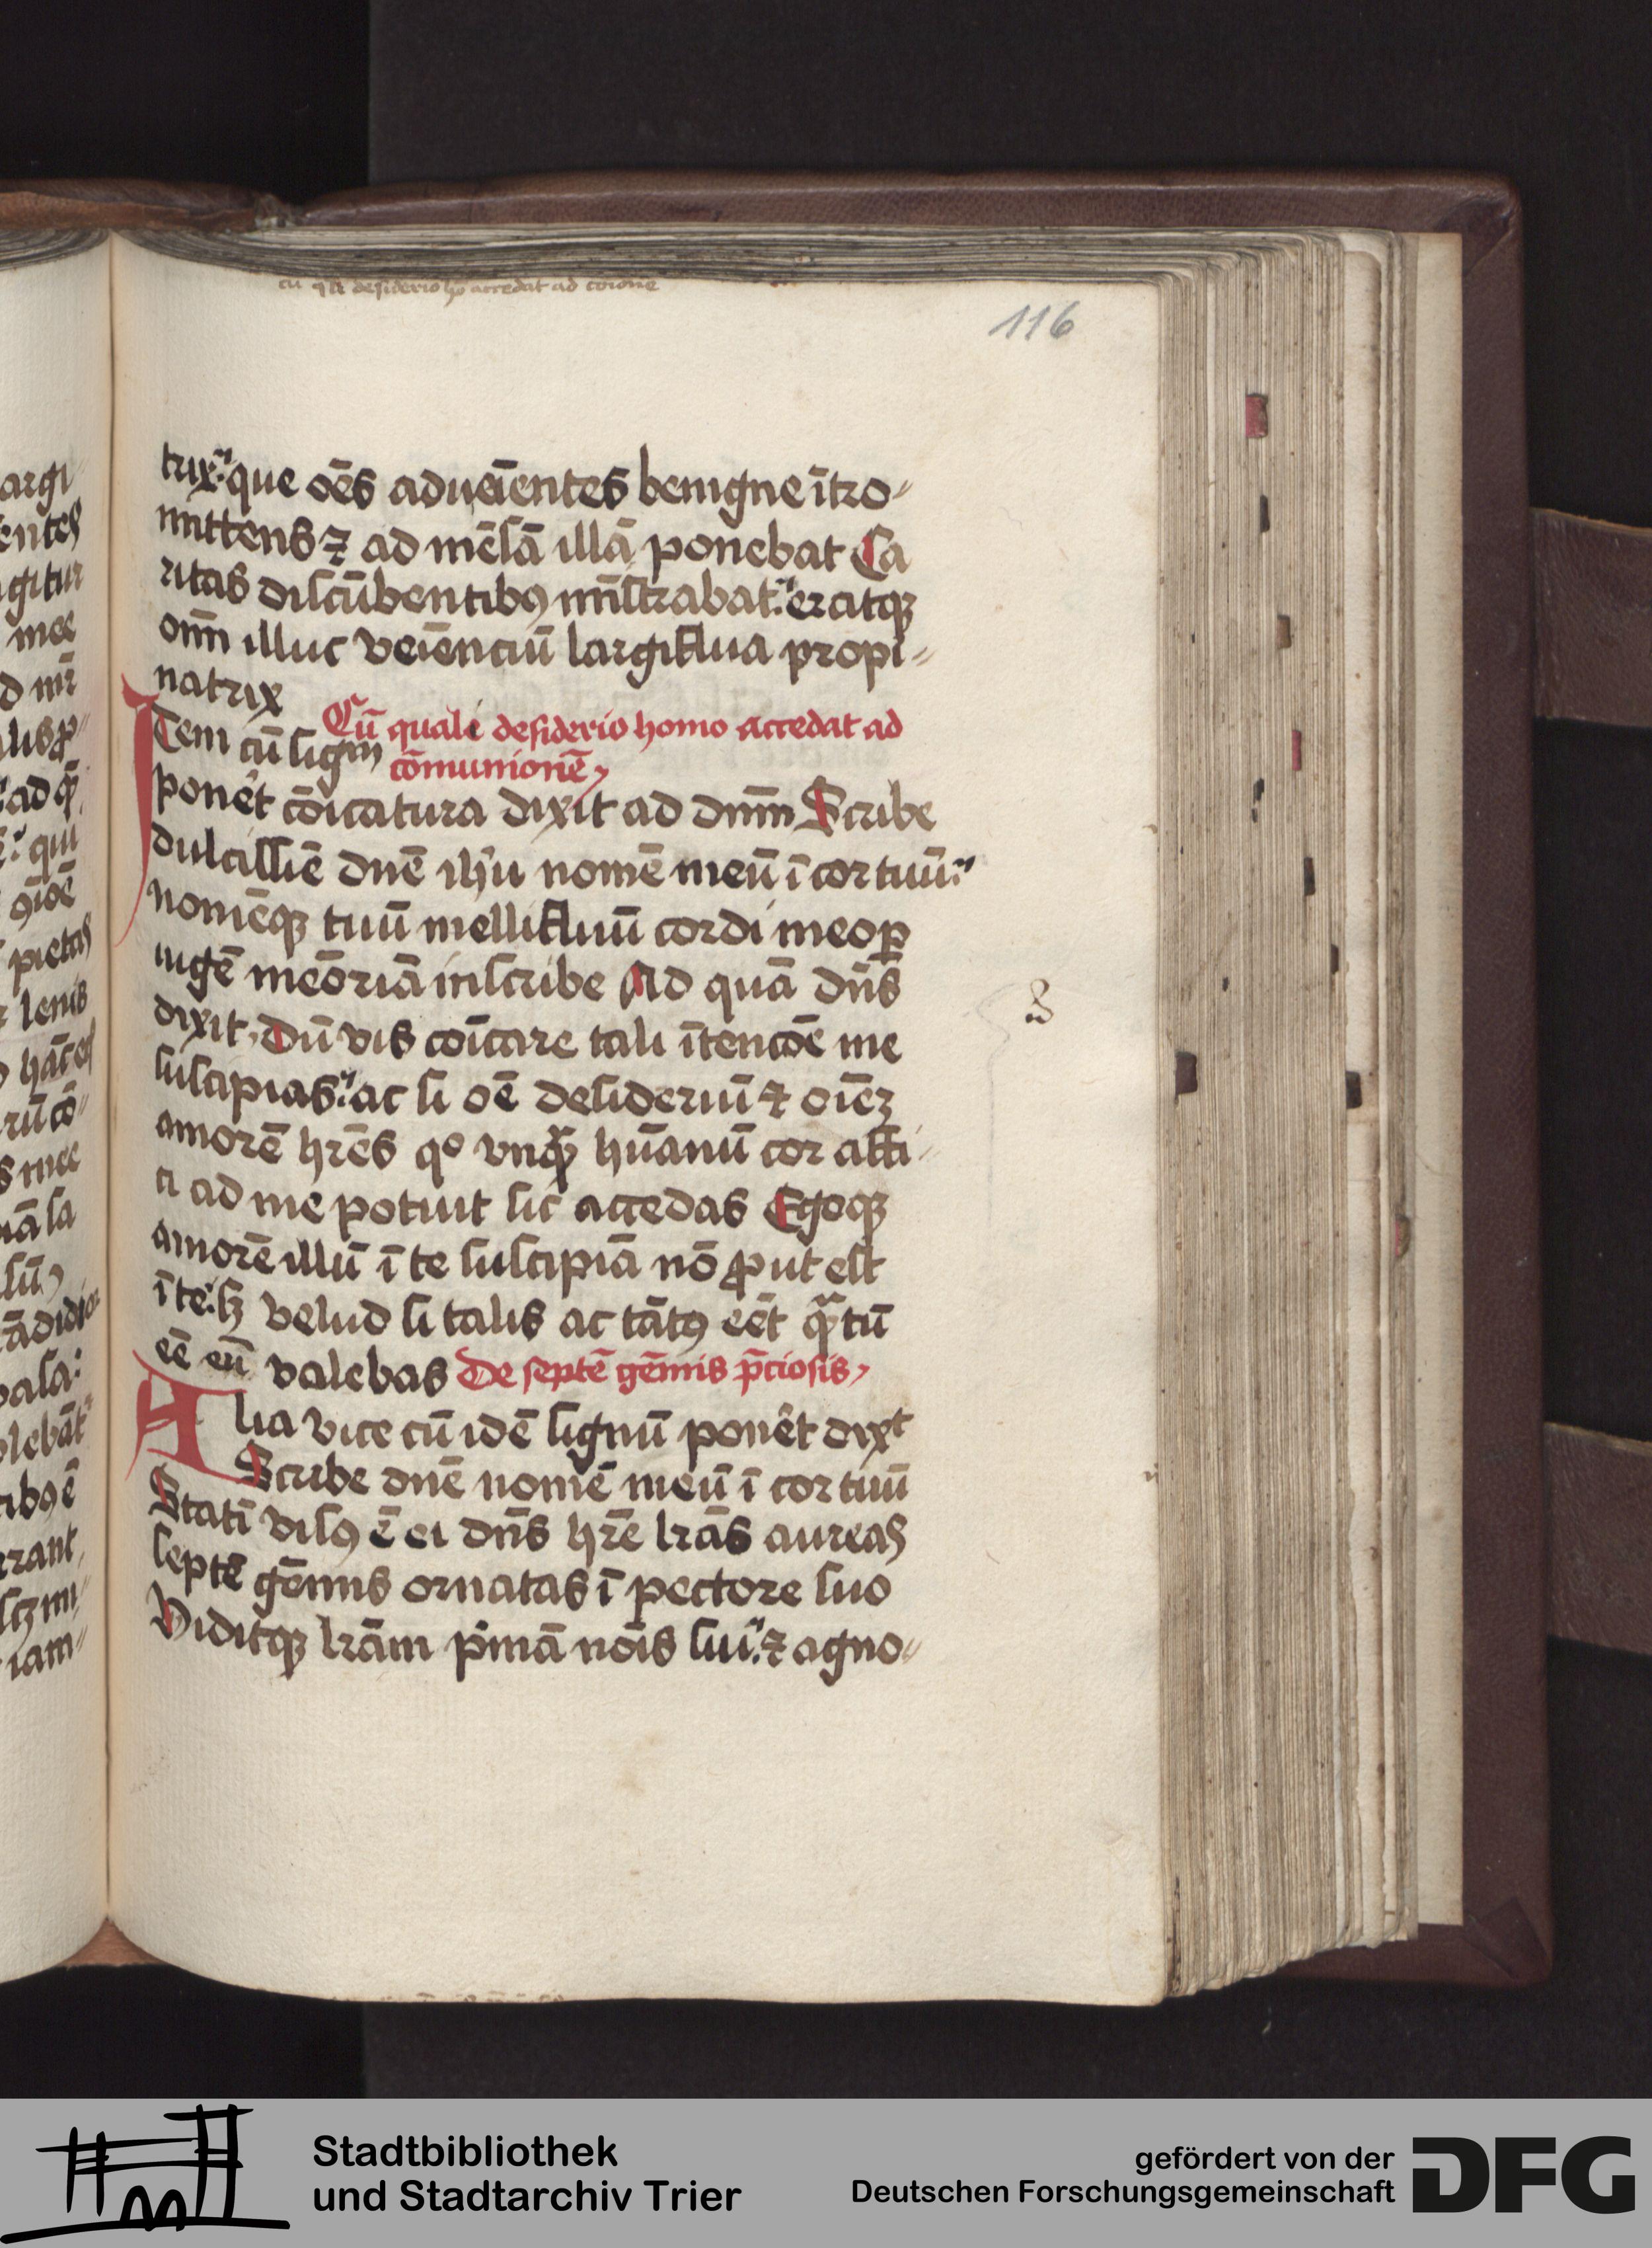 cū qli desiderio hō accedat ad coiōne
116
argi
entes
gitur
mee
d mr̄
ad q̄
qui
pietas
lenis
s mee
iam
trix que oēs adueīentes benigne ītro
mittens ⁊ ad mēsā illā ponebat Ca
ritas discūbentibꝯ mīstrabat eratqꝫ
oīm illuc veīenciū largiflua propi
natrix
Cū quali desiderio homo accedat ad
Item cū signū
cōmunionē
ponēt cōicatura dixit ad dnm̄ Scribe
dulcissīē dnē ihū nomē meū ī cor tuū
nomēqꝫ tuū mellifluū cordi meo ꝑ
iugē meōriā inscribe Ad quā dn̄s
dixit Dū vis coīcare tali ītencōe me
suscipias ac si oē desideriū ⁊ oīēꝫ
amorē hrēs qo vnqꝫ hūanū cor affi
ci ad me potuit sic accedas Egoqꝫ
amorē illū ī te suscipiā nō ꝓut est
ī te sꝫ velud si talis ac tātꝯ eēt qꝫtū
eē eū valebas De septē gēmis p̄ciosis
Alia vice cū idē signū ponēt dixt
Scribe dnē nomē meū ī cor tuū
Statī visꝯ ē ei dn̄s hr̄e lrās aureas
septē gēmis ornatas ī pectore suo
Viditqꝫ lrām pimā nōis sui ⁊ agno
Stadtbibliothek
und Stadtarchiv Trier
gefördert von der
Deutschen Forschungsgemeinschaft
DFG